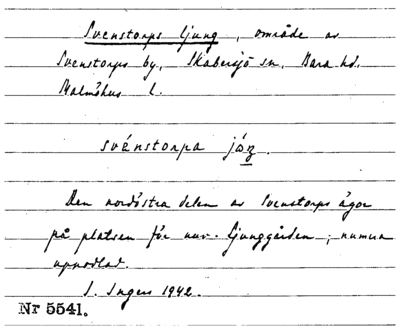 Svenstorps ljung, område av
Svenstorps by, Skabersjö sn, Bara hd.
Malmöhus l.
svénstorpa
Den nordöstra delen av Svenstorps ägor
på platsen för nuv. Ljunggården; numera
uppodlad.
I. Ingers 1942.
Nr 5541.